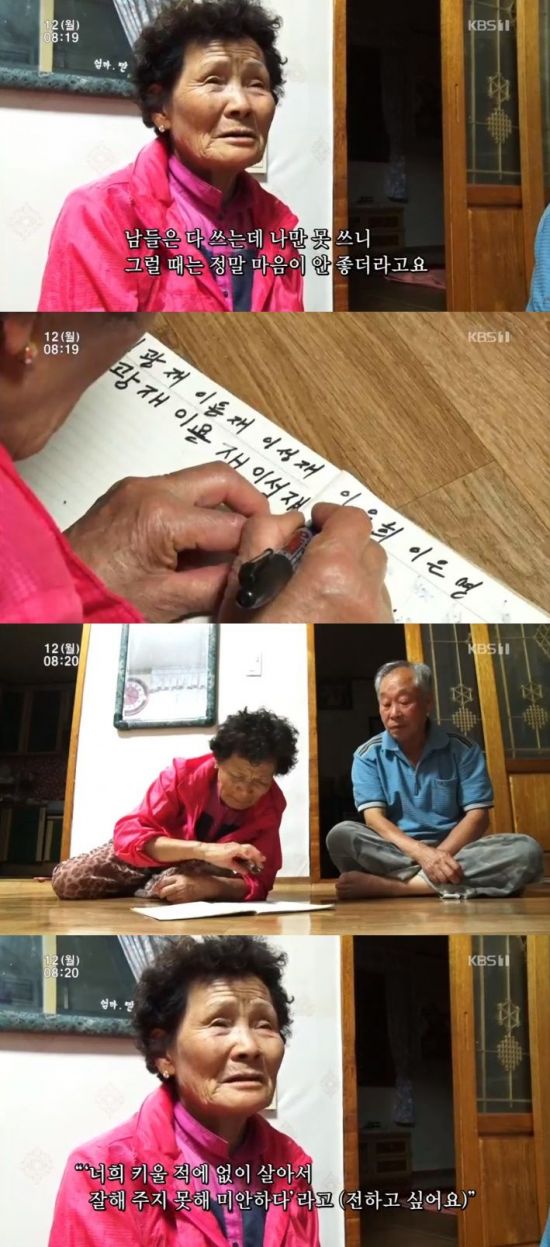 12(월)
08:19
KBS1
엄마. 빨
남들은 다 쓰는데 나만 못 쓰니
그럴 때는 정말 마음이 안 좋더라고요
12(월)
08:19
KBS1
광재 이용재 이성재 이은희 이은명
광재 이용재 이성재
12(월)
08:20
KBS1
12(월)
08:20
KBS1
엄마. 빨
“‘너희 키울 적에 없이 살아서
잘해 주지 못해 미안하다’라고 (전하고 싶어요)”